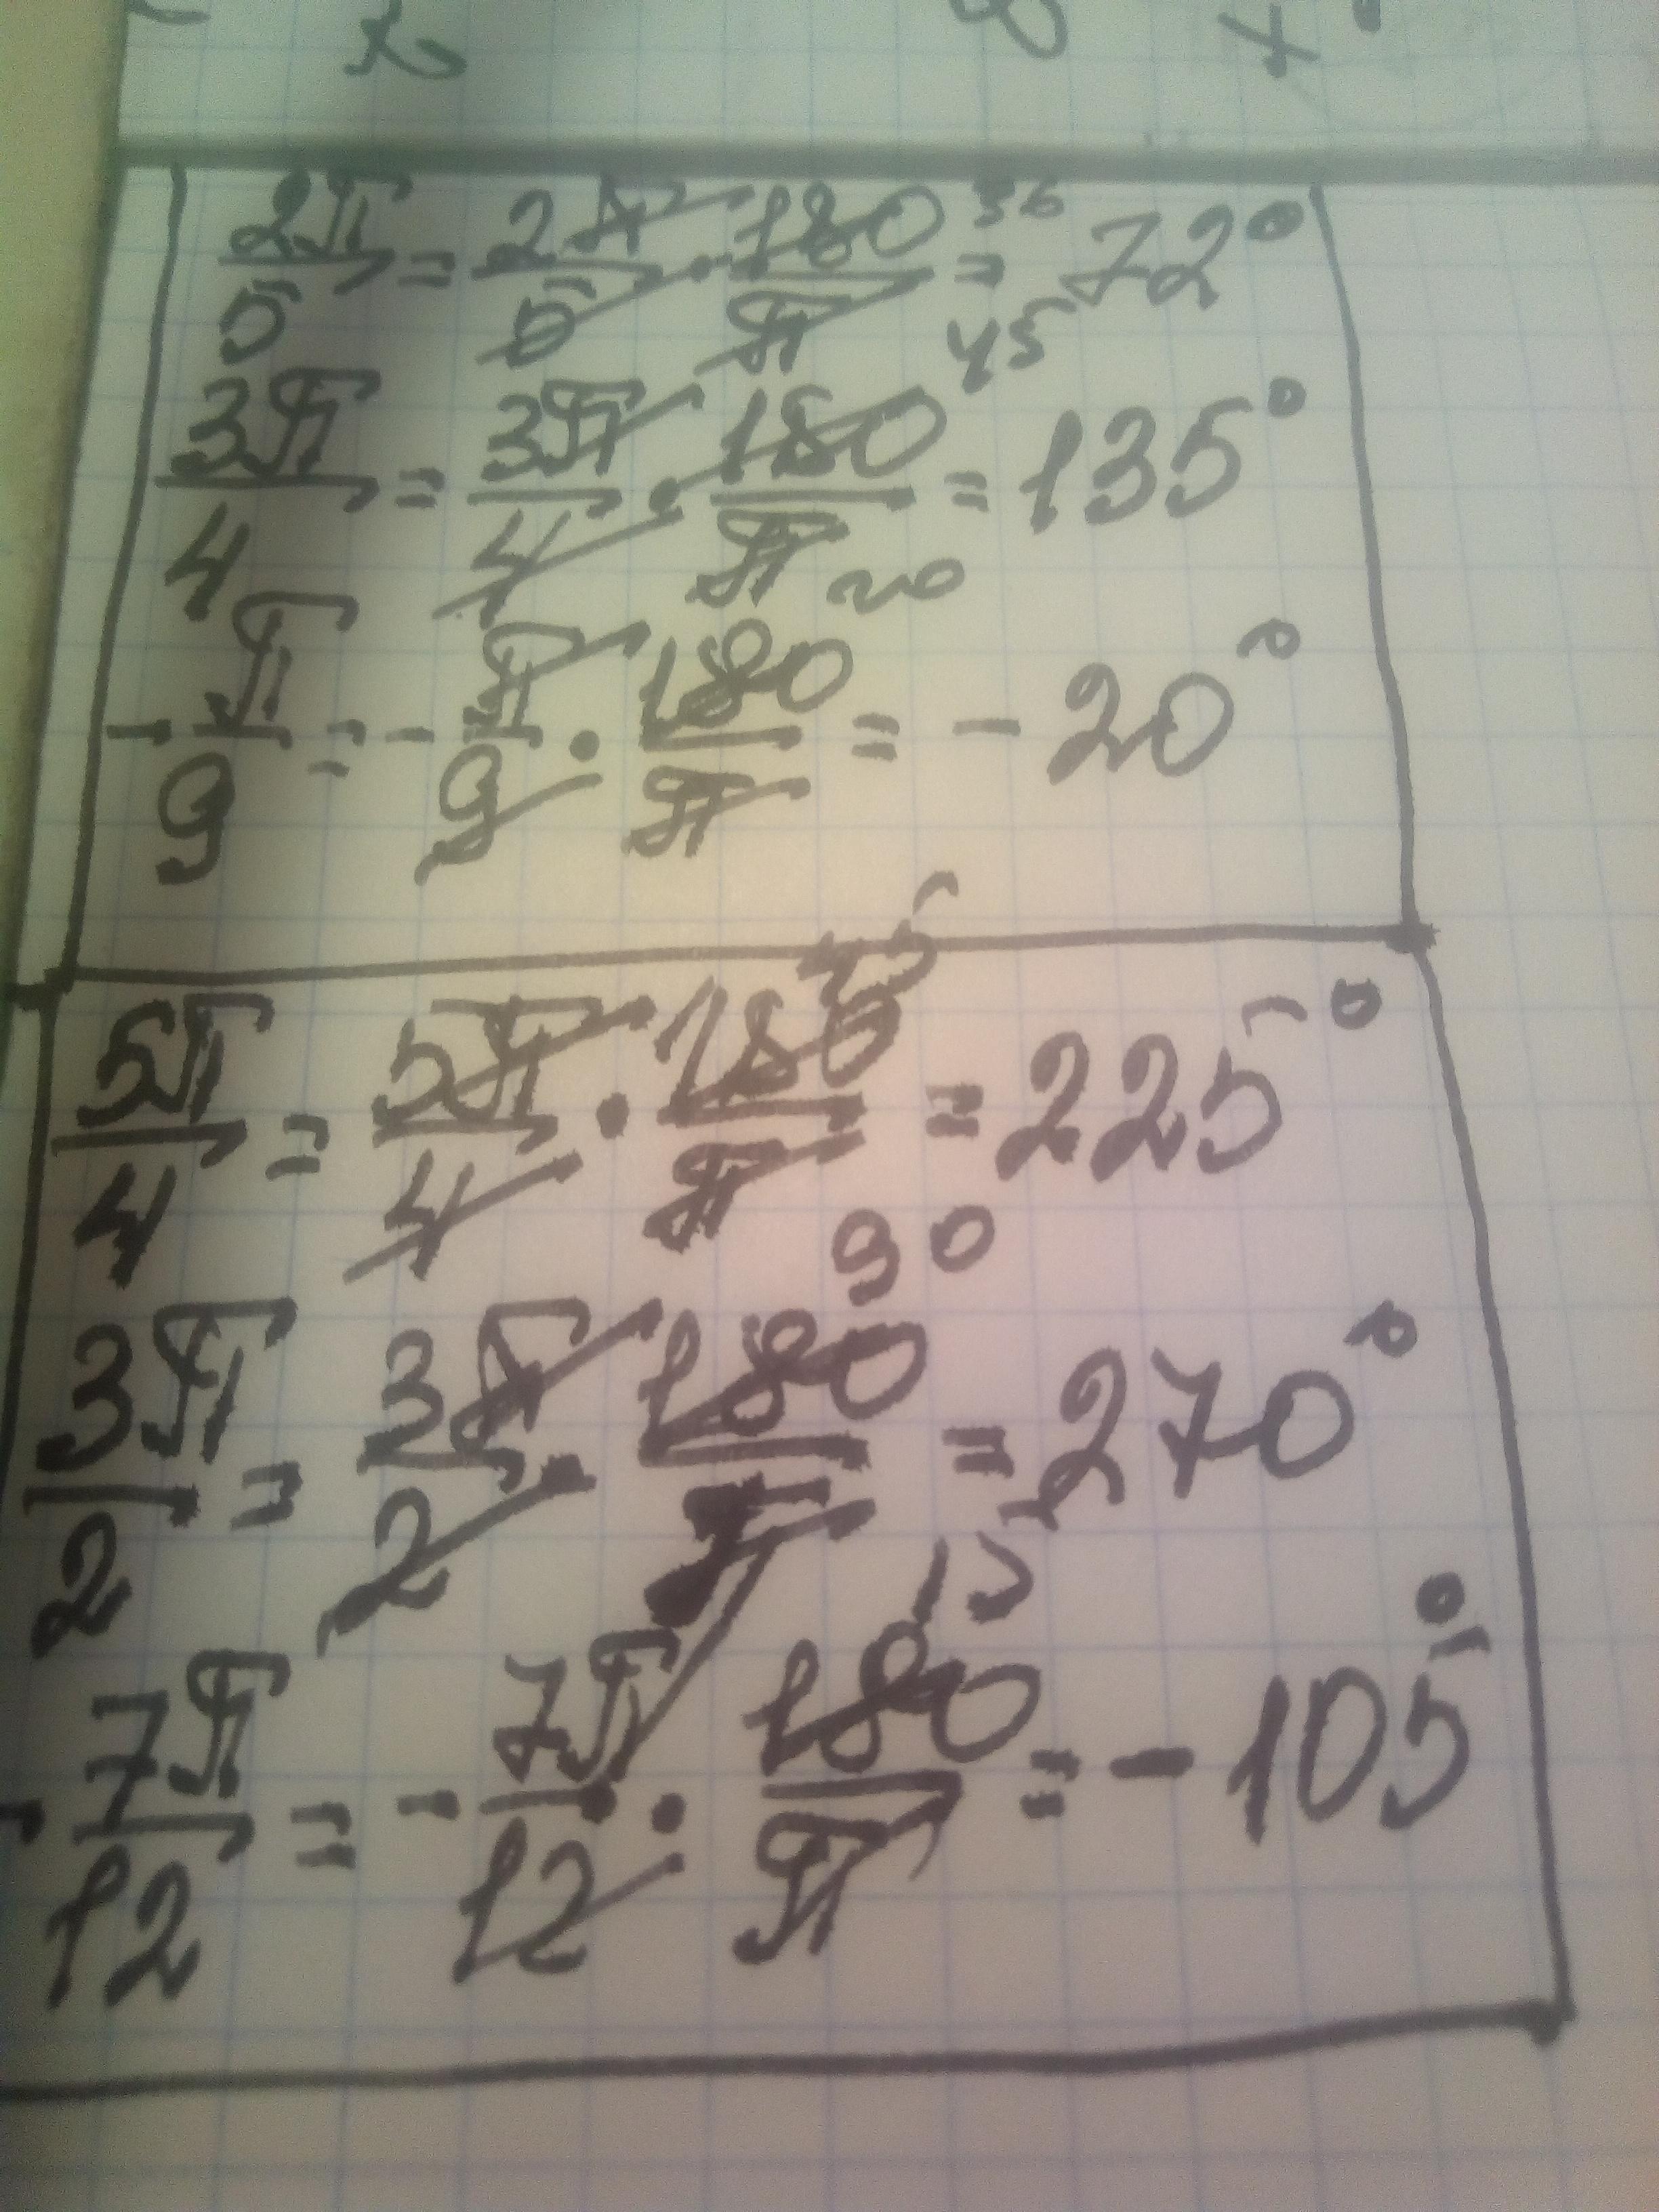 2π/5 = 2π/5 · 180/π = 72° 36
3π/4 = 3π/4 · 180/π = 135° 45
-π/9 = -π/9 · 180/π = -20° 20
5π/4 = 5π/4 · 180/π = 225° 45
3π/2 = 3π/2 · 180/π = 270° 90
-7π/12 = -7π/12 · 180/π = -105° 15